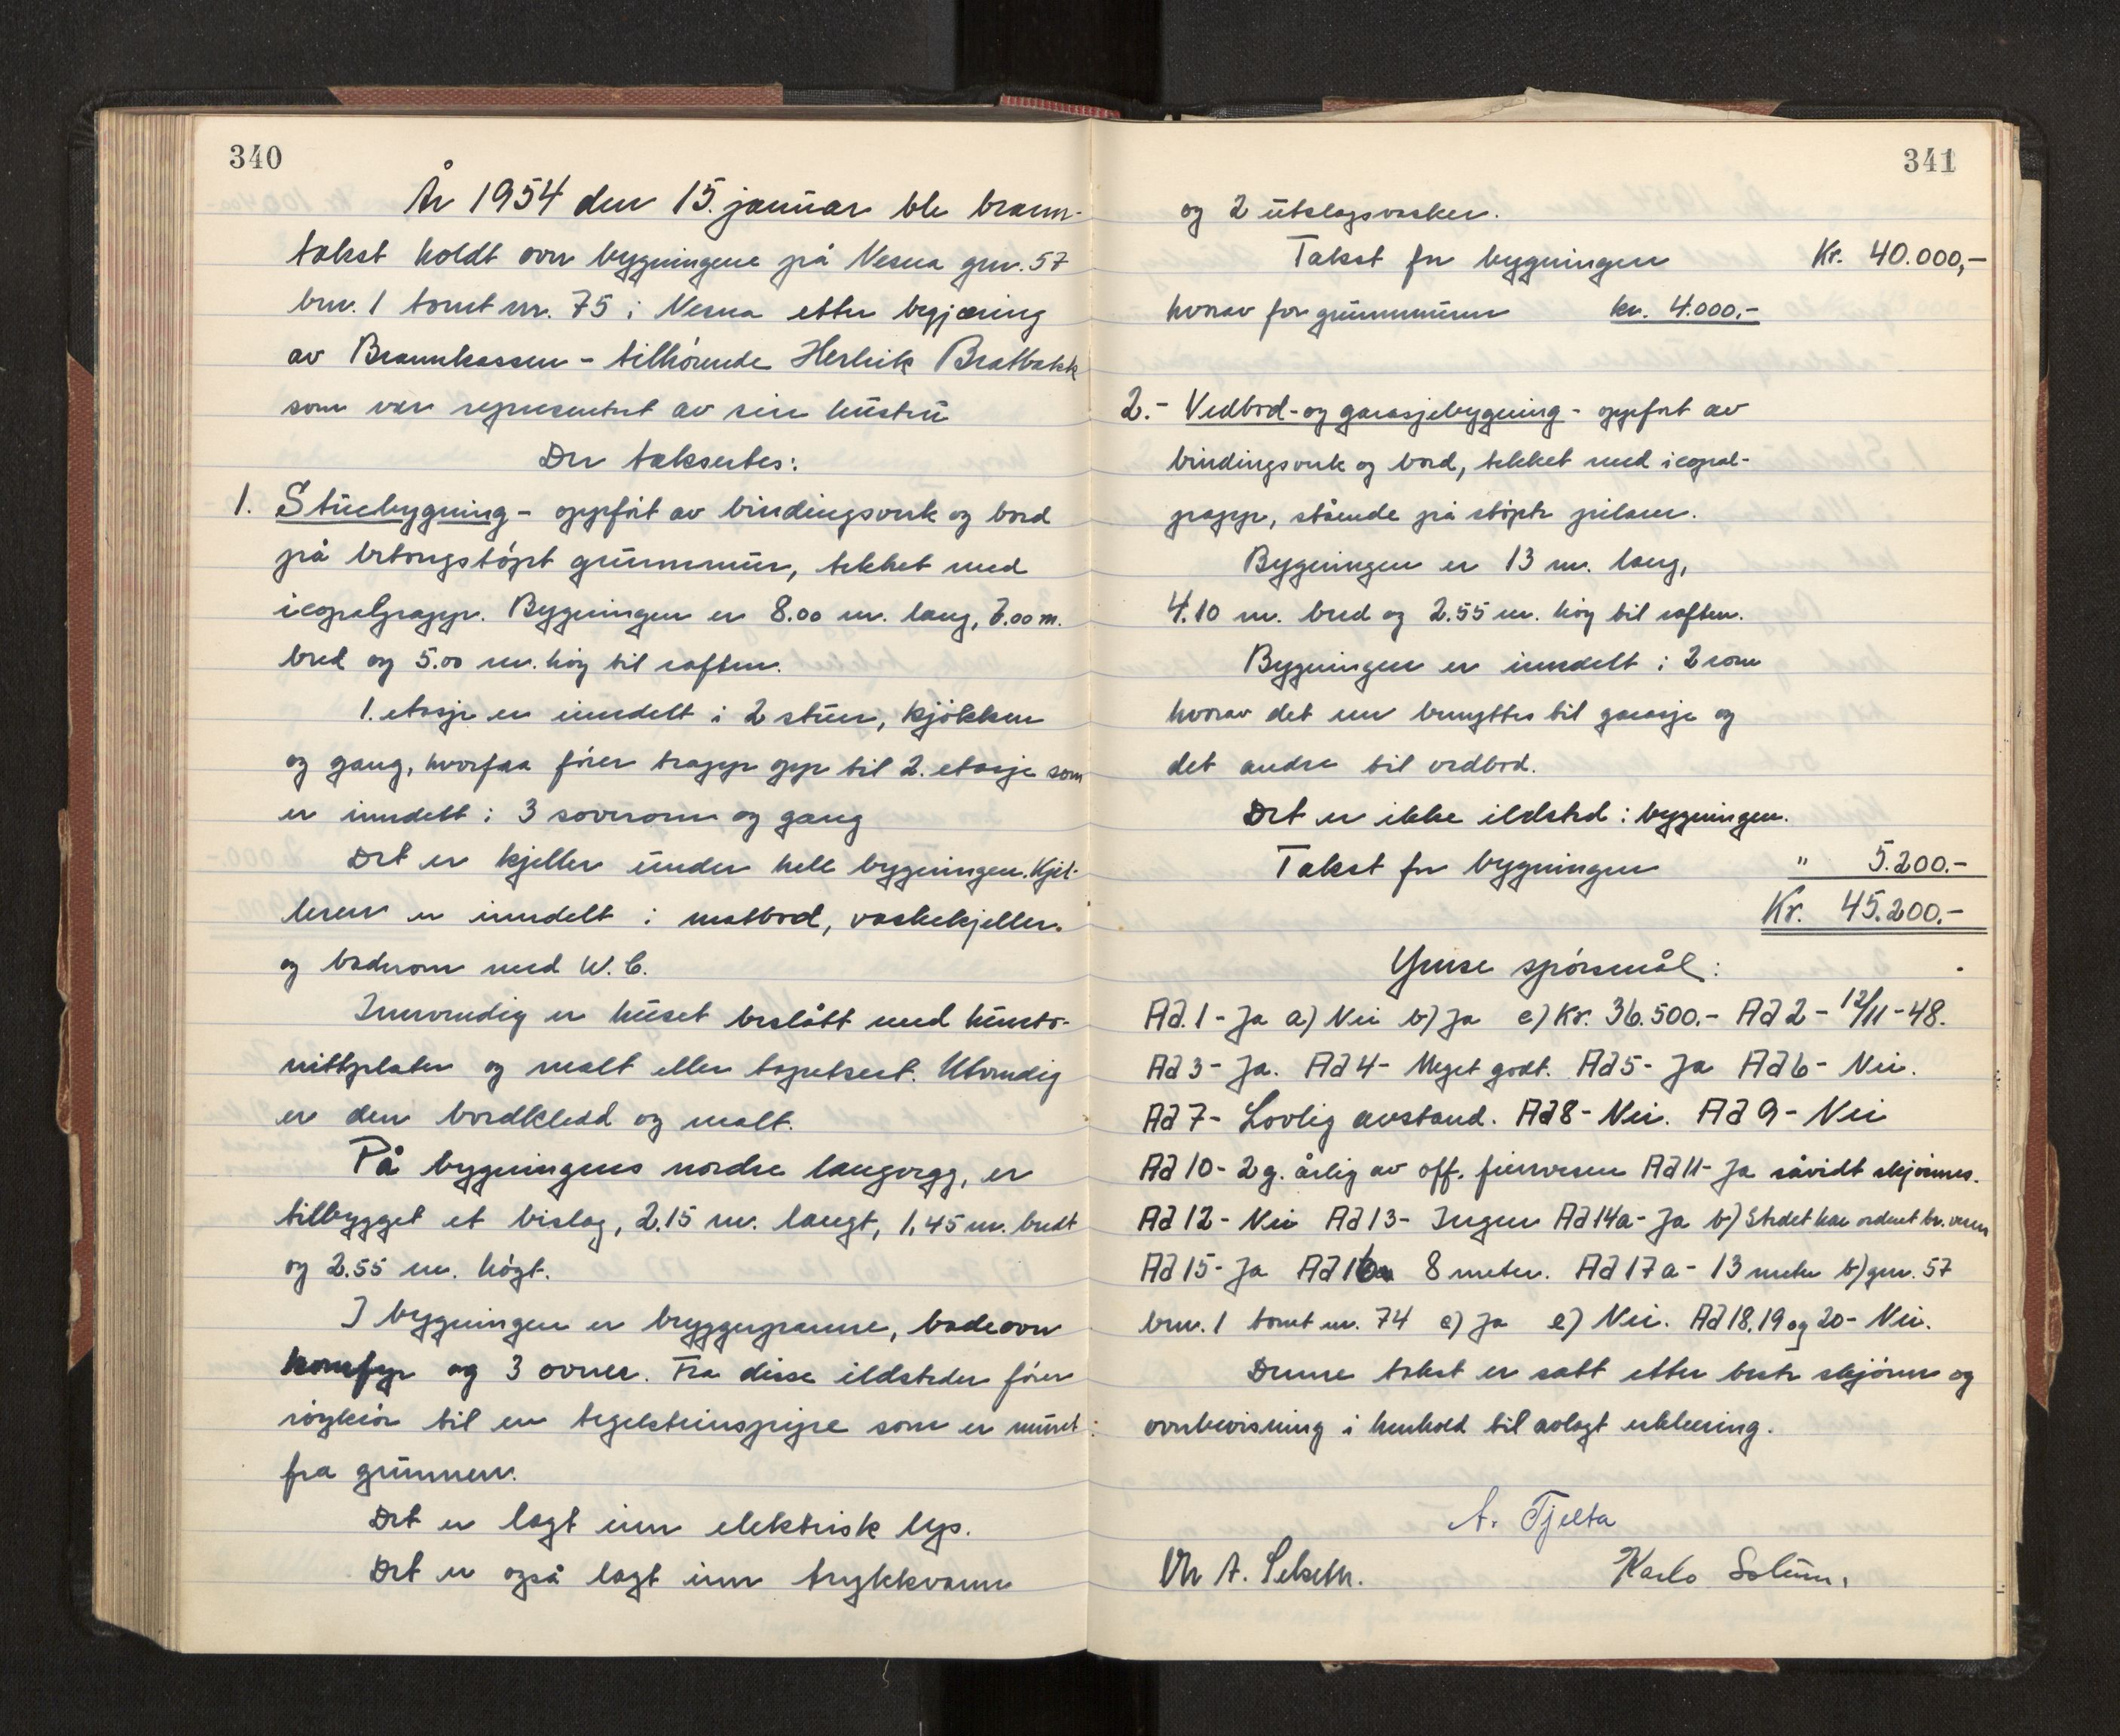 340
År 1954 den 15. januar ble brann-
takst holdt over bygningene på Nesna gnr. 57
bnr. 1 tomt nr. 75 i Nesna etter begjæring
av Brannkassen - tilhørende Herleik Bratbakk
som var representert av sin hustru
Der taksertes:
1. Stuebygning - oppført av bindingsverk og bord
på betongstøpt grunnmur, tekket med
icopalpapp. Bygningen er 8.00 m. lang, 7.00 m.
bred og 5.00 m. høg til raften.
1. etasje er inndelt i 2 stuer, kjøkken
og gang, hvorfaa fører trapp opp til 2. etasje som
er inndelt i 3 soverom og gang
Det er kjeller under hele bygningen. Kjel-
leren er inndelt i matbod, vaskekjeller.
og baderom med W.C.
Innvendig er huset beslått med hunto-
nittplater og malt eller tapetsert. Utvendig
er den bordkledd og malt.
På bygningens nordre langvegg, er
tilbygget et bislag, 2.15 m. langt, 1,45 m. bredt
og 2.55 m. høgt.
I bygningen er bryggerpanne, badeovn
komfyr og 3 ovner. Fra disse ildsteder fører
røykrør til en teglsteinspipe som er muret
fra grunnen.
Det er lagt inn elektrisk lys.
Det er også lagt inn trykkvann
341
og 2 utslagsvasker.
Takst for bygningen Kr. 40.000,-
hvorav for grunnmuren kr. 4.000.-
2.- Vedbod- og garasjebygning - oppført av
bindingsverk og bord, tekket med icopal-
papp, stående på støpte pilarer.
Bygningen er 13 m. lang,
4.10 m. bred og 2.55 m. høg til raften.
Bygningen er inndelt i 2 rom
hvorav det ene benyttes til garasje og
det andre til vedbod.
Det er ikke ildsted i bygningen.
Takst for bygningen " 5.200.-
Kr. 45.200.-
Ymse spørsmål:
Ad. 1 - Ja a) Nei b) Ja c) Kr. 36.500.- Ad 2 - 12/11-48.
Ad 3 - Ja. Ad 4 - Meget godt. Ad 5 - Ja Ad 6 - Nei.
Ad 7 - Lovlig avstand. Ad 8 - Nei. Ad 9 - Nei
Ad 10 - 2 g. årlig av off. feiervesen Ad 11 - Ja såvidt skjønnes.
Ad 12 - Nei Ad 13 - Ingen Ad 14a - Ja b) Stedet har ordnet br.vesen
Ad 15 - Ja Ad 16a 8 meter. Ad 17a - 13 meter b) gnr. 57
bnr. 1 tomt nr. 74 c) Ja e) Nei. Ad 18, 19 og 20 - Nei.
Denne takst er satt etter beste skjønn og
overbevisning i henhold til avlagt erklæring.
A. Fjelta
Chr A. Selseth. Karlo Solum.